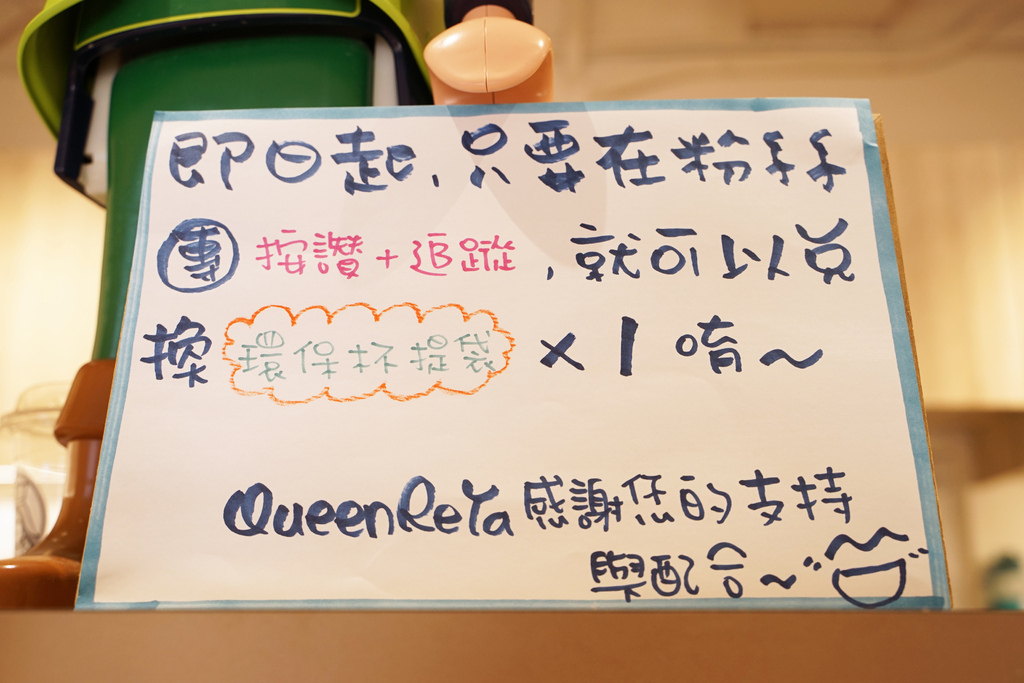 即日起,只要在粉絲
團 按讚+追蹤,就可以兌
換 環保杯提袋 x 1 唷~
QueenReYa 感謝您的支持
與配合~